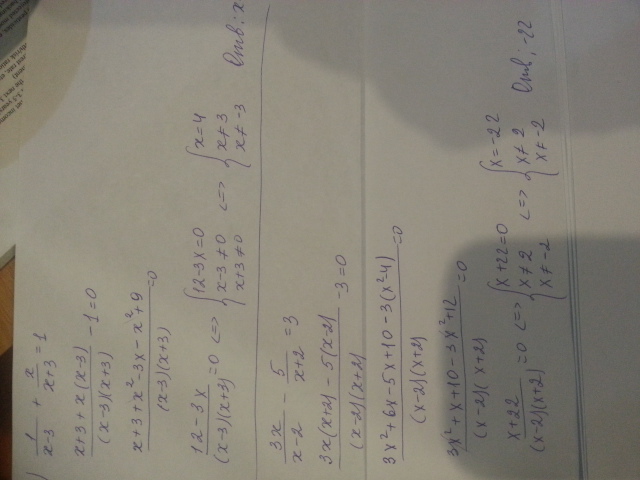 ) 1/(x-3) + x/(x+3) = 1
(x+3+x(x-3))/((x-3)(x+3)) - 1 = 0
(x+3+x²-3x-x²+9)/((x-3)(x+3)) = 0
(12-3x)/((x-3)(x+3)) = 0 <=> { 12-3x=0; x-3≠0; x+3≠0 <=> { x=4; x≠3; x≠-3 Отв: x
3x/(x-2) - 5/(x+2) = 3
(3x(x+2) - 5(x-2))/((x-2)(x+2)) - 3 = 0
(3x²+6x-5x+10-3(x²-4))/((x-2)(x+2)) = 0
(3x²+x+10-3x²+12)/((x-2)(x+2)) = 0
(x+22)/((x-2)(x+2)) = 0 <=> { x+22=0; x≠2; x≠-2 <=> { x=-22; x≠2; x≠-2 Отв: -22